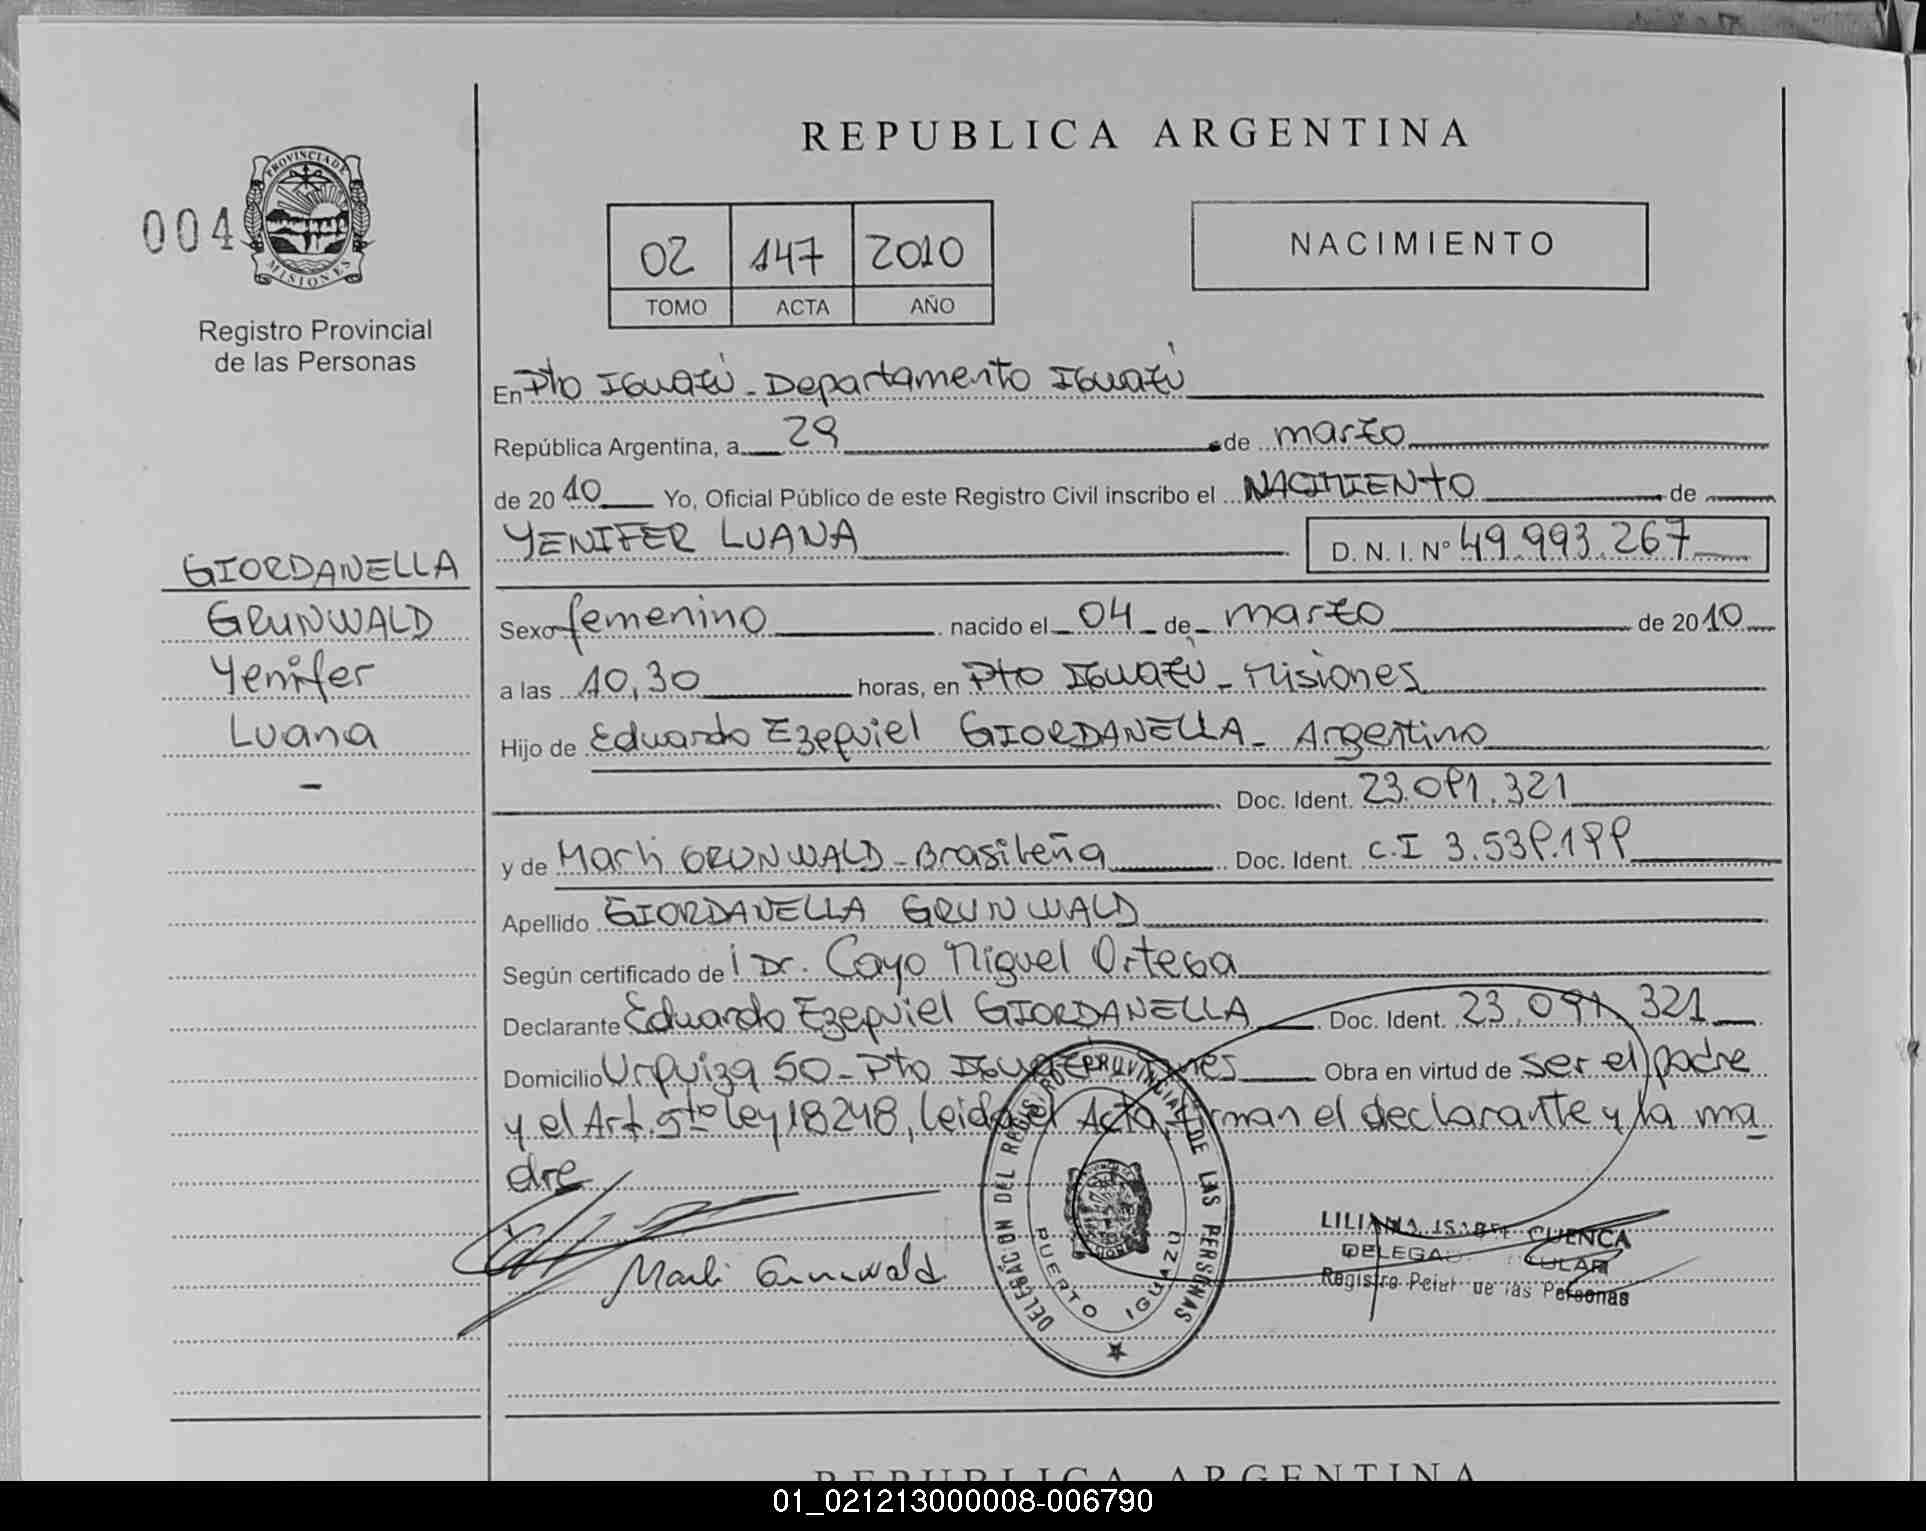 REPUBLICA ARGENTINA
PROVINCIA DE
MISIONES
004
Registro Provincial
de las Personas
02 147 2010
TOMO ACTA AÑO
NACIMIENTO
En Pto Iguazú - Departamento Iguazú
República Argentina, a 29 de marzo
de 2010 Yo, Oficial Público de este Registro Civil inscribo el NACIMIENTO de
YENIFER LUANA D.N.I. Nº 49.993.267
GIORDANELLA
GRUNWALD
Yenifer
Luana
-
Sexo femenino nacido el 04 de marzo de 2010
a las 10,30 horas, en Pto Iguazú - Misiones
Hijo de Eduardo Ezequiel GIORDANELLA - Argentino
Doc. Ident. 23.091.321
y de Marli GRUNWALD - Brasileña Doc. Ident. C.I 3.539.199
Apellido GIORDANELLA GRUNWALD
Según certificado de l Dr. Cayo Miguel Ortega
Declarante Eduardo Ezequiel GIORDANELLA Doc. Ident. 23.091.321
Domicilio Urquiza 50 - Pto Obra en virtud de ser el padre
y el Art. 5to ley 18248, leida el Acta, firman el declarante y la ma
dre
Marli Grunwald
DELEGACION DEL PROVINCIAL DE LAS PERSONAS
PUERTO IGUAZU
LILIANA ISABEL CUENCA
Registro Pcial de las Personas
REPUBLICA ARGENTINA
01_021213000008-006790